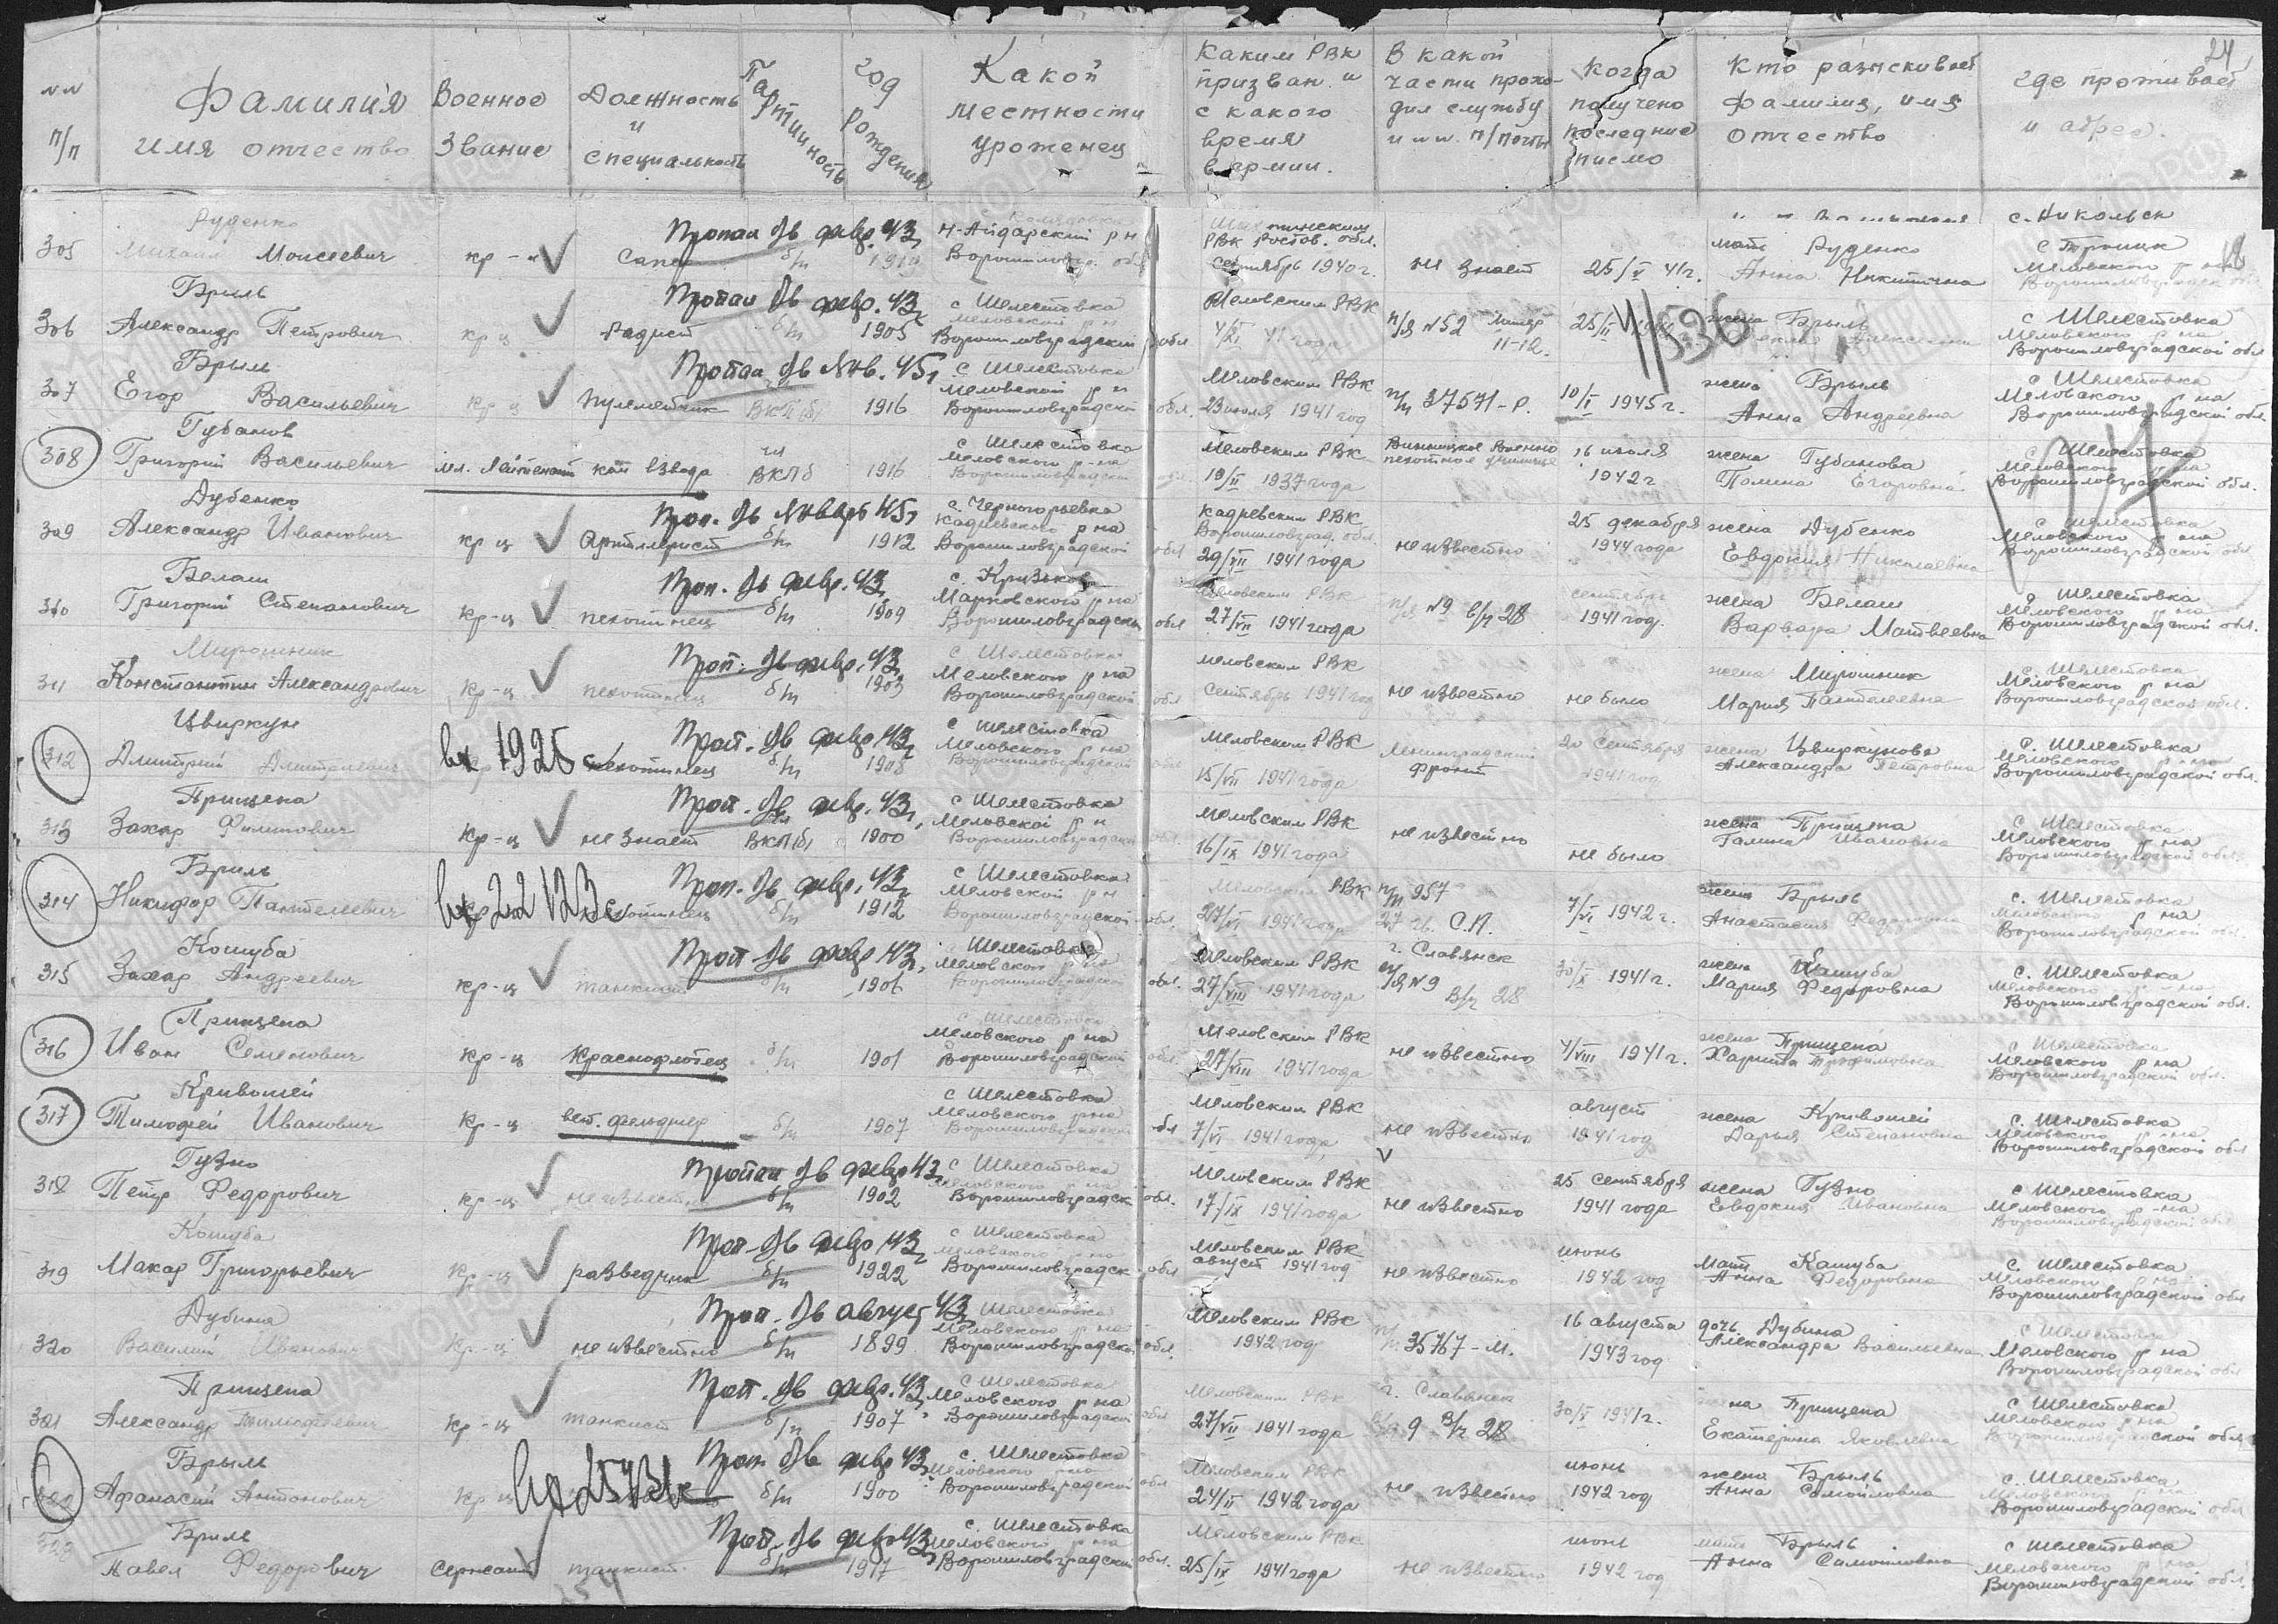 24
№№ п/п
Фамилия имя отчество
Военное звание
Должность и специальность
Партийность
год рождения
Какой местности уроженец
Каким РВК призван и с какого время в армии.
В какой части проходил службу и п/почты
Когда получено последние письмо
Кто разыскивает фамилия, имя отчество
где проживает и адрес.
с. Никольск
18
305 Руденко Михаил Моисеевич кр-ц Сапер Пропал б/в февр. 43 б/п Н-Айдарский р н Ворошиловгр. обл РВК Ростов. обл. сентябрь 1940 г. не знает 25/V 41 г. мать Руденко Анна Никитична с Троицк Меловского р на
306 Брыль Александр Петрович кр ц Радист Пропал б/в февр. 43 б/п 1905 с Шелестовка Меловской р н Ворошиловградской обл Меловским РВК 4/XI 41 года п/я №52 литер 11-12. жена Брыль с Шелестовка Меловского р на Ворошиловградской обл
1/536
307 Брыль Егор Васильевич кр ц пулеметчик Пропал б/в янв. 45 ВКП(б) 1916 с Шелестовка Меловской р н Ворошиловградской обл. Меловским РВК 23 июля 1941 год п/п 37571-Р. 10/I 1945 г. жена Брыль Анна Андреевна с Шелестовка Меловского р на Ворошиловградской обл
308 Губанов Григорий Васильевич мл. лейтенант ком взвода чл ВКПб 1916 с Шелестовка Меловского р-на Ворошиловградской обл. Меловским РВК 19/II 1937 года Винницкое Военно пехотное училище 16 июля 1942 г жена Губанова Полина Егоровна с Шелестовка Меловского р на Ворошиловградской обл.
309 Дубенко Александр Иванович кр ц Артилерист Проп. б/в январь 45 б/п 1912 с. Черногорьевка Кадиевского р на Ворошиловградской обл Кадиевским РВК Ворошиловград. обл. 29/VII 1941 года не известно 25 декабря 1944 года жена Дубенко Евдокия Николаевна с Шелестовка Меловского р на Ворошиловградской обл
310 Белаш Григорий Степанович кр-ц пехотинец Проп. б/в февр. 43 б/п 1909 Марковского р на Ворошиловградской обл Меловским РВК 27/VII 1941 года п/я №9 в/ч 28 сентябрь 1941 год. жена Белаш Варвара Матвеевна с Шелестовка Меловского р на Ворошиловградской обл.
311 Мирошник Константин Александрович кр-ц пехотинец Проп. б/в февр. 43 б/п 1903 с Шелестовка Меловского р на Ворошиловградской обл Меловским РВК сентябрь 1941 год не известно не было жена Мирошник Мария Пантелеевна с. Шелестовка Меловского р на Ворошиловградской обл.
312 Цвиркун Дмитрий вх 1925с пехотинец Проп. б/в февр. 43 б/п 1908 с Шелестовка Меловского р на Ворошиловградской обл Меловским РВК 15/VII 1941 года Ленинградский фронт 20 сентября 1941 год жена Цвиркунова Александра Петровна с. Шелестовка Меловского р-на Ворошиловградской обл.
313 Прищепа Захар Филипович кр-ц не знает Проп. б/в февр. 43 ВКП(б) 1900 с Шелестовка Меловской р н Ворошиловградской обл. Меловским РВК 16/IX 1941 года не известно не было жена Прищепа Галина Ивановна с Шелестовка Меловского р на Ворошиловградской обл.
314 Брыль Никифор Пантелеевич вх 22123с Проп. б/в февр. 43 1912 с Шелестовка Меловской р н Ворошиловградской обл. Меловским РВК 27/VI 1941 года п/п 957 27 гв. С.П. 7/VI 1942 г. жена Брыль Анастасия Федоровна с. Шелестовка Меловского р на Ворошиловградской обл.
315 Кошуба Захар Андреевич кр-ц танкист Проп б/в февр 43 б/п 1906 Шелестовка Меловского р на Ворошиловградской обл. Меловским РВК 27/VIII 1941 года г. Славянск п/я №9 в/ч 28 30/X 1941 г. жена Кашуба Мария Федоровна с. Шелестовка Меловского р-на Ворошиловградской обл.
316 Прищепа Иван Семенович кр-ц Краснофлотец б/п 1901 с Шелестовка Меловского р на Ворошиловградской обл. Меловским РВК 27/VIII 1941 года не известно 4/VIII 1941 г. жена Прищепа Харитина Трофимовна с Шелестовка Меловского р на Ворошиловградской обл.
317 Кривошей Тимофей Иванович кр-ц вет. фельдшер б/п 1907 с Шелестовка Меловского р на Ворошиловградской обл Меловским РВК 7/VI 1941 года, не известно август 1941 год жена Кривошей Дарья Степановна с. Шелестовка Меловского р-на Ворошиловградской обл
318 Гузно Петр Федорович кр-ц не известно Пропал б/в февр 43 б/п 1902 с Шелестовка Меловского р на Ворошиловградской обл. Меловским РВК 17/IX 1941 года не известно 25 сентября 1941 года жена Гузно Евдокия Ивановна с Шелестовка Меловского р-на Ворошиловградской обл
319 Кошуба Макар Григорьевич кр-ц разведчик Проп. б/в февр 43 б/п 1922 с Шелестовка Меловского р на Ворошиловградской обл Меловским РВК август 1941 год не известно июнь 1942 год мать Кашуба Анна Федоровна с. Шелестовка Меловского р на Ворошиловградской обл
320 Дубина Василий Иванович кр-ц не известно Проп. б/в август 43 б/п 1899 Шелестовка Меловского р на Ворошиловградской обл. Меловским РВК 1942 год п/п 35767-М. 16 августа 1943 год дочь Дубина Александра Васильевна с Шелестовка Меловского р на Ворошиловградской обл
321 Прищепа Александр Тимофеевич кр-ц танкист Проп. б/в февр. 43 б/п 1907 с Шелестовка Меловского р на Ворошиловградской обл Меловским РВК 27/VII 1941 года г. Славянск 9 в/ч 28 30/X 1941 г. жена Прищепа Екатерина Яковлевна с Шелестовка Меловского р на Ворошиловградской обл
322 Брыль Афанасий Антонович кр ц Проп. б/в февр 43 б/п 1900 с. Шелестовка Меловского р на Ворошиловградской обл Меловским РВК 24/II 1942 года не известно июнь 1942 год жена Брыль Анна Самойловна с. Шелестовка Меловского р на Ворошиловградской обл
323 Брыль Павел Федорович сержант танкист. Проп. б/в февр 43 б/п 1917 с. Шелестовка Меловского р на Ворошиловградской обл. Меловским РВК 25/IX 1941 года не известно июнь 1942 год мать Брыль Анна Самойловна с Шелестовка Меловского р на Ворошиловградской обл.